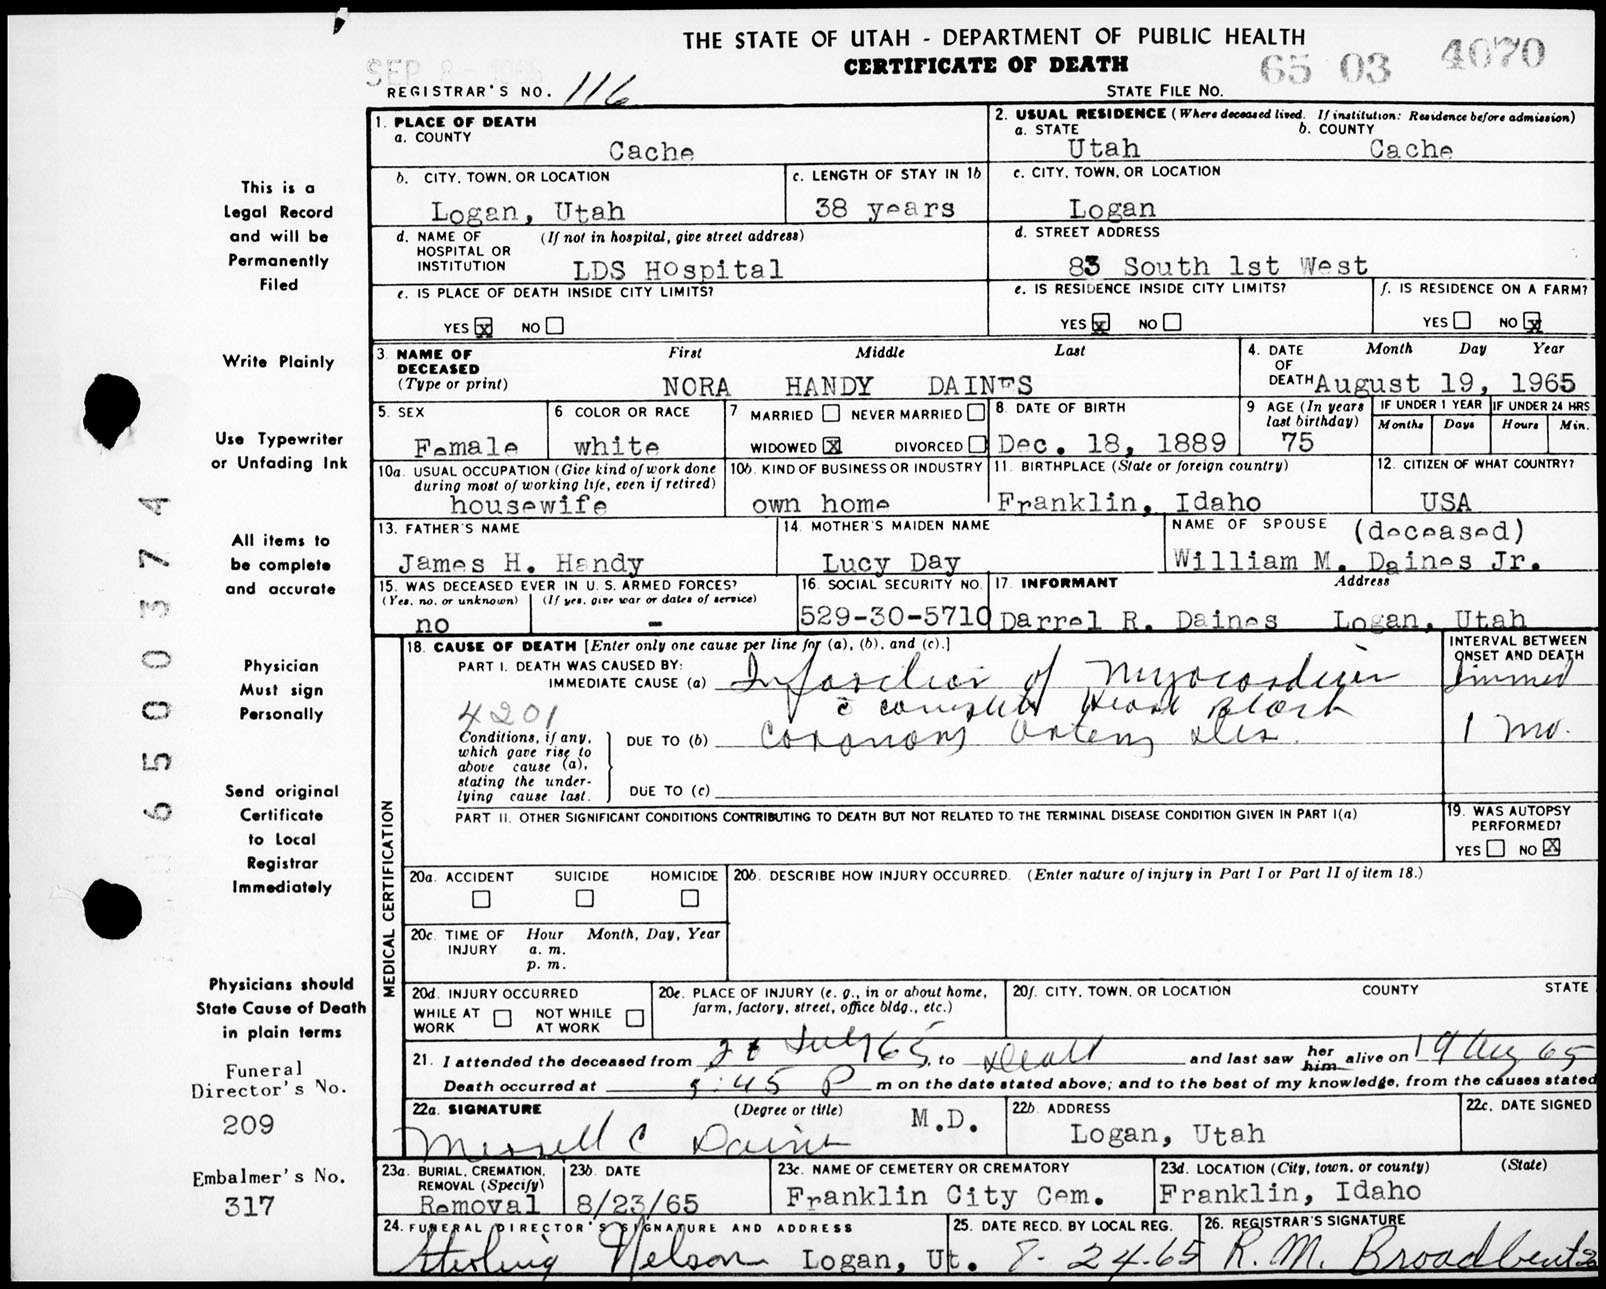 THE STATE OF UTAH - DEPARTMENT OF PUBLIC HEALTH
CERTIFICATE OF DEATH
65 03 4070
SEP 8 - 1965
REGISTRAR'S NO. 116
STATE FILE NO.
1. PLACE OF DEATH
a. COUNTY
Cache
2. USUAL RESIDENCE (Where deceased lived. If institution: Residence before admission)
a. STATE b. COUNTY
Utah Cache
b. CITY, TOWN, OR LOCATION
Logan, Utah
c. LENGTH OF STAY IN 1b
38 years
c. CITY, TOWN, OR LOCATION
Logan
d. NAME OF HOSPITAL OR INSTITUTION (If not in hospital, give street address)
LDS Hospital
d. STREET ADDRESS
83 South 1st West
e. IS PLACE OF DEATH INSIDE CITY LIMITS?
YES x NO
e. IS RESIDENCE INSIDE CITY LIMITS?
YES x NO
f. IS RESIDENCE ON A FARM?
YES NO x
3. NAME OF DECEASED (Type or print)
First Middle Last
NORA HANDY DAINES
4. DATE OF DEATH
Month Day Year
August 19, 1965
5. SEX
Female
6 COLOR OR RACE
white
7 MARRIED NEVER MARRIED
WIDOWED x DIVORCED
8. DATE OF BIRTH
Dec. 18, 1889
9 AGE (In years last birthday)
75
IF UNDER 1 YEAR
Months Days
IF UNDER 24 HRS
Hours Min.
10a. USUAL OCCUPATION (Give kind of work done during most of working life, even if retired)
housewife
10b. KIND OF BUSINESS OR INDUSTRY
own home
11. BIRTHPLACE (State or foreign country)
Franklin, Idaho
12. CITIZEN OF WHAT COUNTRY?
USA
13. FATHER'S NAME
James H. Handy
14. MOTHER'S MAIDEN NAME
Lucy Day
NAME OF SPOUSE (deceased)
William M. Daines Jr.
15. WAS DECEASED EVER IN U. S. ARMED FORCES?
(Yes, no, or unknown) (If yes, give war or dates of service)
no -
16. SOCIAL SECURITY NO.
529-30-5710
17. INFORMANT Address
Darrel R. Daines Logan, Utah
MEDICAL CERTIFICATION
18. CAUSE OF DEATH [Enter only one cause per line for (a), (b), and (c).]
INTERVAL BETWEEN ONSET AND DEATH
PART I. DEATH WAS CAUSED BY:
IMMEDIATE CAUSE (a) Infarction of Myocardium Immed
c̄ complete Heart Block
4201
Conditions, if any, which gave rise to above cause (a), stating the underlying cause last.
DUE TO (b) Coronary Artery dis. 1 mo.
DUE TO (c)
PART II. OTHER SIGNIFICANT CONDITIONS CONTRIBUTING TO DEATH BUT NOT RELATED TO THE TERMINAL DISEASE CONDITION GIVEN IN PART I(a)
19. WAS AUTOPSY PERFORMED?
YES NO x
20a. ACCIDENT SUICIDE HOMICIDE
20b. DESCRIBE HOW INJURY OCCURRED. (Enter nature of injury in Part I or Part II of item 18.)
20c. TIME OF INJURY
Hour Month, Day, Year
a. m.
p. m.
20d. INJURY OCCURRED
WHILE AT WORK NOT WHILE AT WORK
20e. PLACE OF INJURY (e. g., in or about home, farm, factory, street, office bldg., etc.)
20f. CITY, TOWN, OR LOCATION COUNTY STATE
21. I attended the deceased from July 65, to Death and last saw her him alive on 19 Aug 65
Death occurred at :45 P m on the date stated above; and to the best of my knowledge, from the causes stated
22a. SIGNATURE (Degree or title)
Merrell C Daines M.D.
22b. ADDRESS
Logan, Utah
22c. DATE SIGNED
23a. BURIAL, CREMATION, REMOVAL (Specify)
Removal
23b. DATE
8/23/65
23c. NAME OF CEMETERY OR CREMATORY
Franklin City Cem.
23d. LOCATION (City, town, or county) (State)
Franklin, Idaho
24. FUNERAL DIRECTOR'S SIGNATURE AND ADDRESS
Sterling Nelson Logan, Ut.
25. DATE RECD. BY LOCAL REG.
8-24-65
26. REGISTRAR'S SIGNATURE
R. M. Broadbent
This is a
Legal Record
and will be
Permanently
Filed
Write Plainly
Use Typewriter
or Unfading Ink
All items to
be complete
and accurate
Physician
Must sign
Personally
Send original
Certificate
to Local
Registrar
Immediately
Physicians should
State Cause of Death
in plain terms
Funeral
Director's No.
209
Embalmer's No.
317
6500374